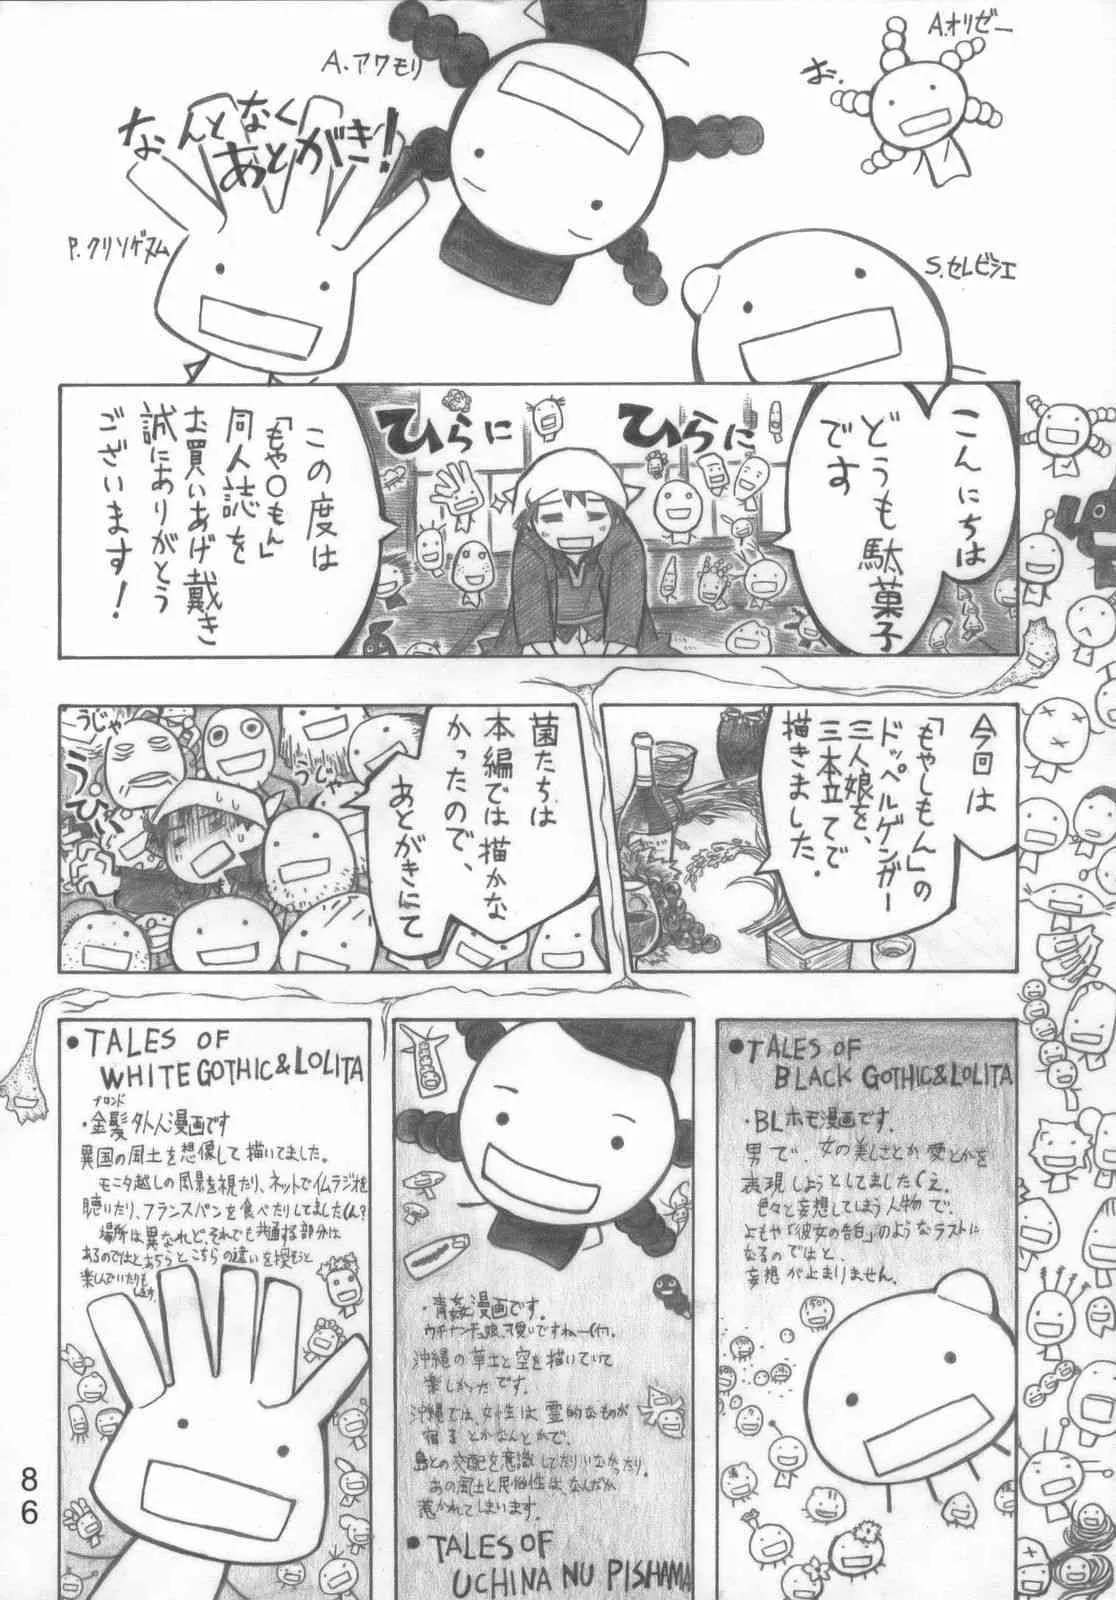 A.オリゼー
お。
A.アワモリ
なんとなく
あとがき!
P.クリソゲヌム
S.セレビシエ
こんにちは
どうも駄菓子
です
ひらに
ひらに
この度は
「もや〇もん」
同人誌を
お買いあげ戴き
誠にありがとう
ございます!
今回は
「もやしもん」の
ドッペルゲンガー
三人娘を、
三本立てで
描きました。
菌たちは
本編では描かな
かったので、
あとがきにて
うじゃ
うじゃ
TALES OF
BLACK GOTHIC&LOLITA
・BLホモ漫画です。
男で、女の美しさとか愛とかを
表現しようとしてました
色々と妄想してしまう人物で、
よもや「彼女の告白」のようなラストに
なるのではと、
妄想が止まりません。
・青姦漫画です。
ウチナンチュ娘、可愛いですねー
沖縄の草土と空を描いていて
楽しかったです。
沖縄では、女性は霊的なものが
宿るとかなんとかで、
島との交配を意識してたりいなかったり。
あの風土と民俗性は、なんだか
惹かれてしまいます。
TALES OF
UCHINA NU PISHAMA
TALES OF
WHITE GOTHIC&LOLITA
ブロンド
・金髪外人漫画です
異国の風土を想像して描いてました。
モニタ越しの風景を視たり、ネットでイムラジオを
聴いたり、フランスパンを食べたりしてました
場所は異なれど、それでも共通する部分は
あるのではと、あちらと、こちらの違いを探そうと
楽しんでいたりも
86